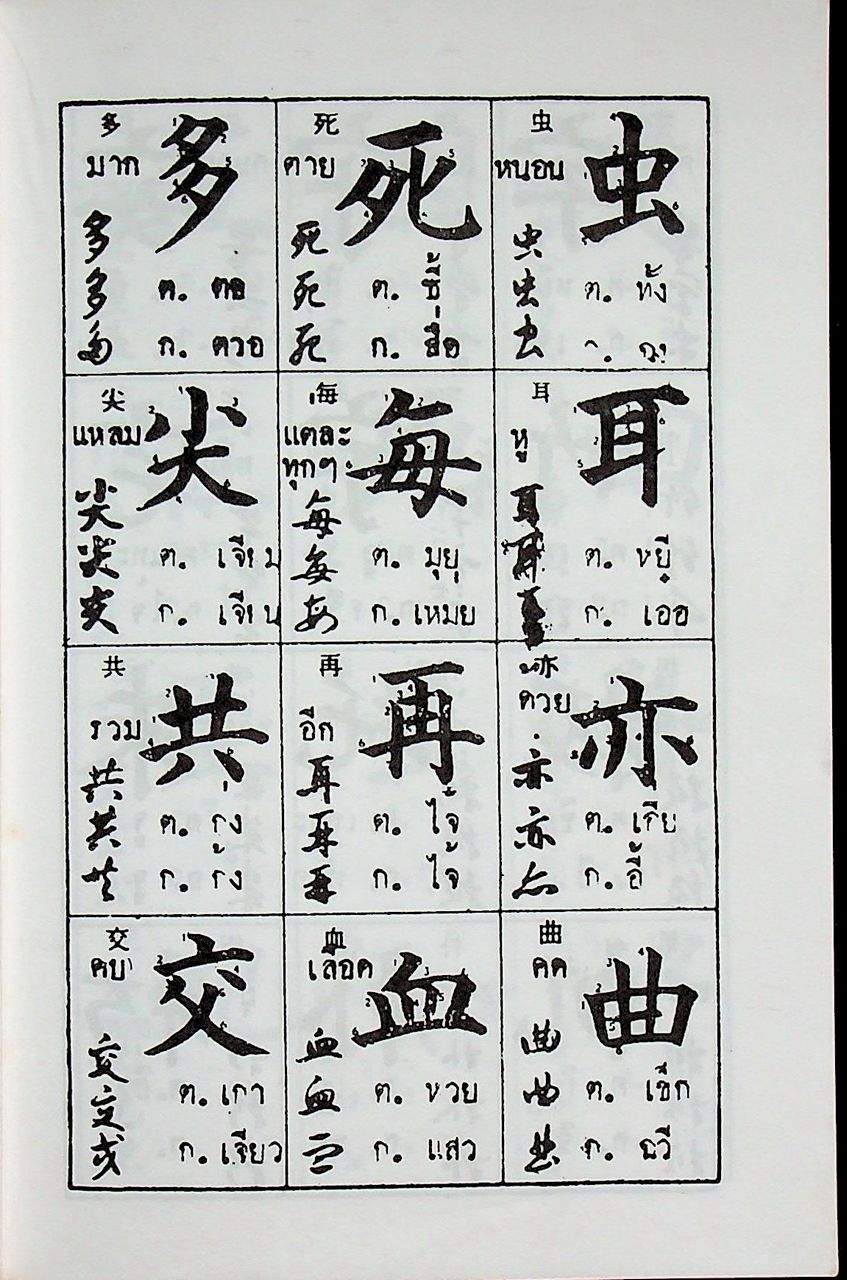 多
多
มาก
多
多
多
ต. ตอ
ก. ตวอ
死
死
ตาย
死
死
死
ต. ซี้
ก. สื่อ
虫
虫
หนอน
虫
虫
虫
ต. ทั้ง
尖
尖
แหลม
尖
尖
尖
ต. เจียม
ก. เจียน
每
每
แต่ละ
ทุกๆ
每
每
每
ต. มุยฺ
ก. เหมย
耳
耳
หู
耳
ต. หยี
ก. เออ
共
共
รวม
共
共
共
ต.
ก.
再
再
อีก
再
再
再
ต. ไจ้
ก. ไจ้
亦
亦
ด้วย
亦
亦
亦
ต. เกีย
ก. อี้
交
交
คบ
交
交
交
ต. เกา
ก. เจียว
血
血
เลือด
血
血
血
ต. หวย
ก. แสว
曲
曲
คด
曲
曲
曲
ต. เขิก
ก. ฉวี